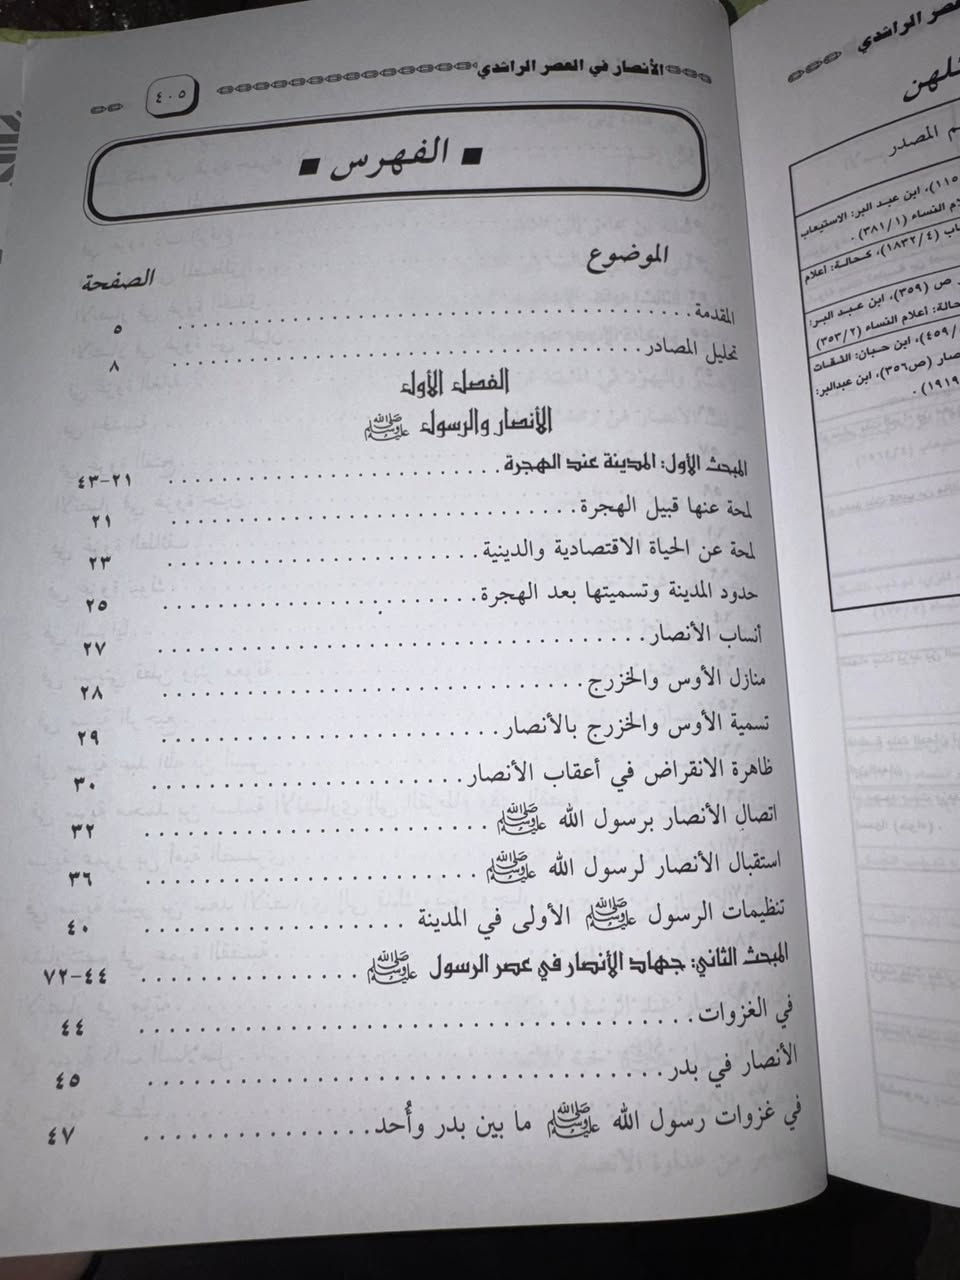 الأنصار في العصر الراشدي
٤٠٥
الفهرس
الموضوع الصفحة
المقدمة ٥
تحليل المصادر ٨
الفصل الأول
الأنصار والرسول ﷺ
المبحث الأول: المدينة عند الهجرة ٢١-٤٣
لمحة عنها قبيل الهجرة ٢١
لمحة عن الحياة الاقتصادية والدينية ٢٣
حدود المدينة وتسميتها بعد الهجرة ٢٥
أنساب الأنصار ٢٧
منازل الأوس والخزرج ٢٨
تسمية الأوس والخزرج بالأنصار ٢٩
ظاهرة الانقراض في أعقاب الأنصار ٣٠
اتصال الأنصار برسول الله ﷺ ٣٢
استقبال الأنصار لرسول الله ﷺ ٣٦
تنظيمات الرسول ﷺ الأولى في المدينة ٤٠
المبحث الثاني: جهاد الأنصار في عصر الرسول ﷺ ٤٤-٧٢
في الغزوات ٤٤
الأنصار في بدر ٤٥
في غزوات رسول الله ﷺ ما بين بدر وأُحد ٤٧
الراشدي
المصدر
ابن عبد البر: الاستيعاب
أعلام النساء (٣٨١/١).
(١٨٣٢/٤)، كحالة: أعلام
ص (٣٥٩)، ابن عبد البر:
أعلام النساء (٣٥٣/٢)
ابن حبان: الثقات
(ص٣٥٦)، ابن عبدالبر: